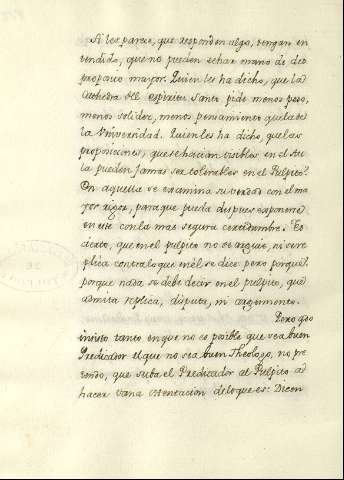 Si les parece, que responden algo, tengan en
tendido, que no pueden echar mano de des
proposito mayor. Quien les ha dicho, que la
Cathedra del espiritu Santo pide menos peso,
menos solidez, menos pensamiento que la de
la Universidad. Quien les ha dicho, que las
proposiciones, que se hacian risibles en el Au
la pueden jamas ser tolerables en el Pulpito?
En aquella se examina su verdad con el ma
yor rigor, para que pueda despues exponerse
en este con la mas segura certidumbre. Es
cierto, que en el pulpito no se arguie, ni se re
plica contra lo que en él se dice pero porque?
porque nada se debe decir en el pulpito, que
admita replica, disputa, ni argumento.
Pero
insisto tanto en que no es posible que sea buen
Predicador el que no sea buen Theologo, no pre
tendo, que suba el Predicador al Pulpito a
hacer vana ostentacion de lo que es: Dicen